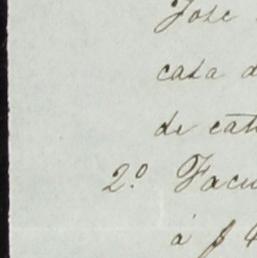 José
casa d
de cat
2.º Facu
á $ 4